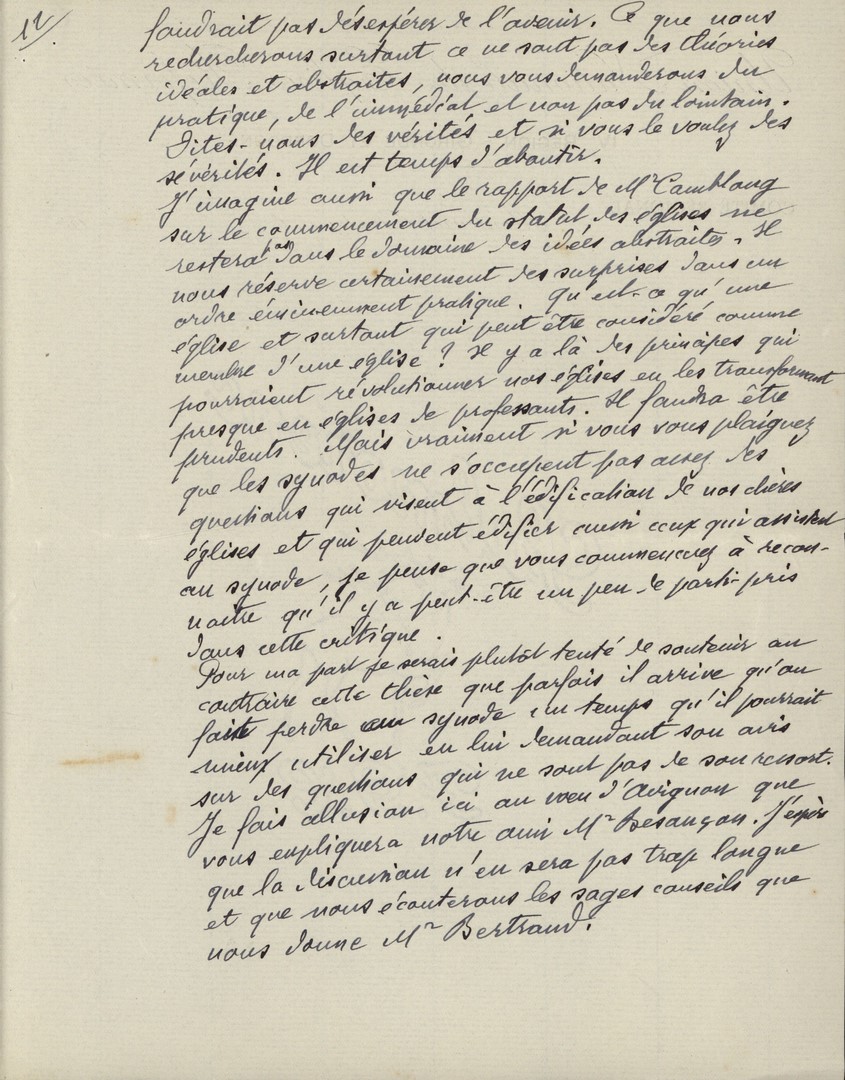 12/
faudrait pas désespérer de l'avenir. Ce que nous
rechercherons surtout ce ne sont pas des théories
idéales et abstraites, nous vous demanderons du
pratique, de l'immédiat et non pas du lointain.
Dites-nous des vérités et si vous le voulez des
sévérités. Il est temps d'aboutir.
J'imagine aussi que le rapport de Mr Camblong
sur le commencement du statut des églises ne
restera pas dans le domaine des idées abstraites. Il
nous réserve certainement des surprises dans un
ordre éminemment pratique. Qu'est-ce qu'une
église et surtout qui peut être considéré comme
membre d'une église ? Il y a là des principes qui
pourraient révolutionner nos églises en les transformant
presque en églises de professants. Il faudra être
prudents. Mais vraiment si vous vous plaignez
que les synodes ne s'occupent pas assez des
questions qui visent à l'édification de nos chères
églises et qui peuvent édifier aussi ceux qui assistent
au synode, je pense que vous commencez à recon-
naître qu'il y a peut-être un peu de parti-pris
dans cette critique.
Pour ma part je serais plutôt tenté de soutenir au
contraire cette thèse que parfois il arrive qu'on
fait perdre au synode un temps qu'il pourrait
mieux utiliser en lui demandant son avis
sur des questions qui ne sont pas de son ressort.
Je fais allusion ici au voeu d'Avignon que
vous expliquera notre ami Mr Besançon. J'espère
que la discussion n'en sera pas trop longue
et que nous écouterons les sages conseils que
nous donne Mr Bertrand.